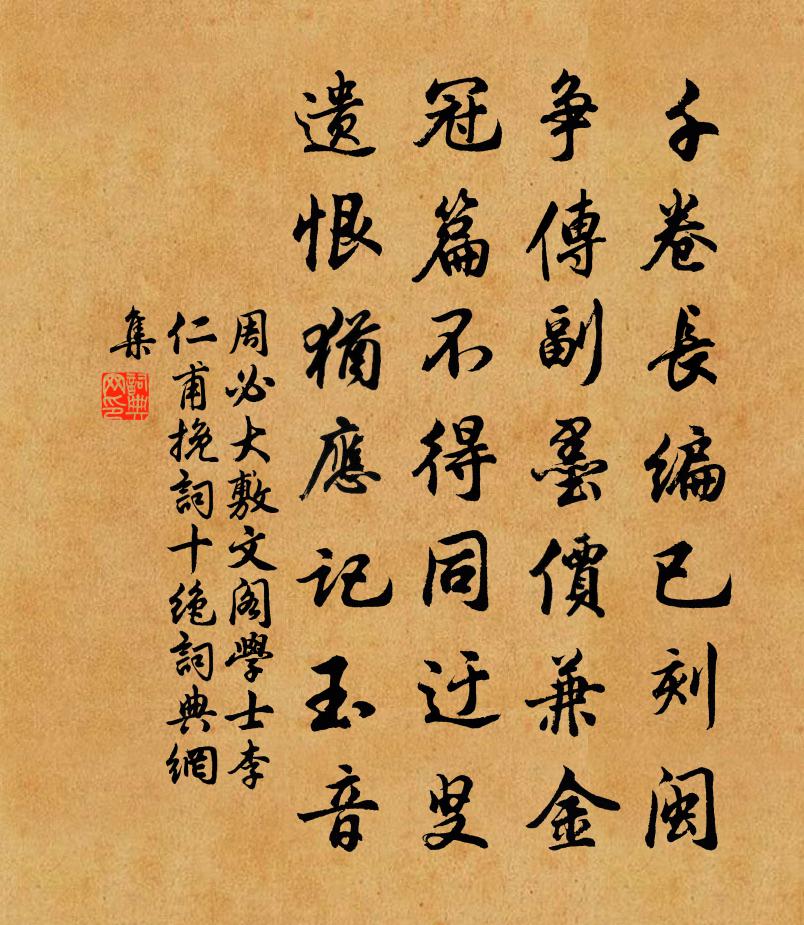 千卷長編已刻閩
争傳副墨價兼金
冠篇不得同迂叟
遺恨猶應記玉音
周必大敷文阁學士李
仁甫挽詞十绝詞典網
集
詞典网印